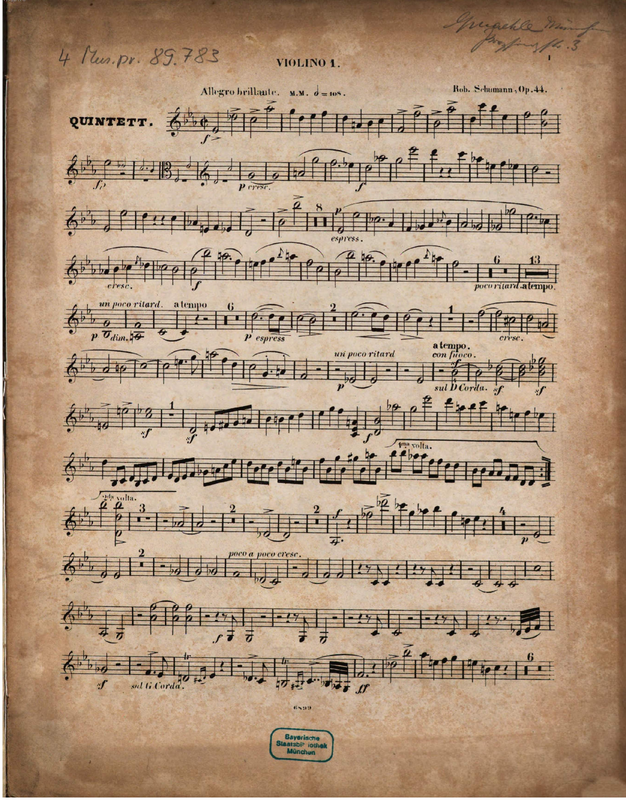 4 Mus.pr. 89.783
VIOLINO 1.
1
Allegro brillante. M.M. 𝅗𝅥 = 108.
Rob. Schumann, Op. 44.
QUINTETT.
f
fp
p cresc.
f
8
p
espress.
cresc.
f
6
13
poco ritard. a tempo.
un poco ritard. a tempo
6
2
1
p dim.
p espress
cresc.
un poco ritard
a tempo.
con fuoco.
p
sul D Corda.
sf
sf
1
sf
sf
2da volta.
3
2
2
4
p
2
poco a poco cresc.
sf
f
6
sf
sul G Corda.
ff
6899
Bayerische
Staatsbibliothek
München